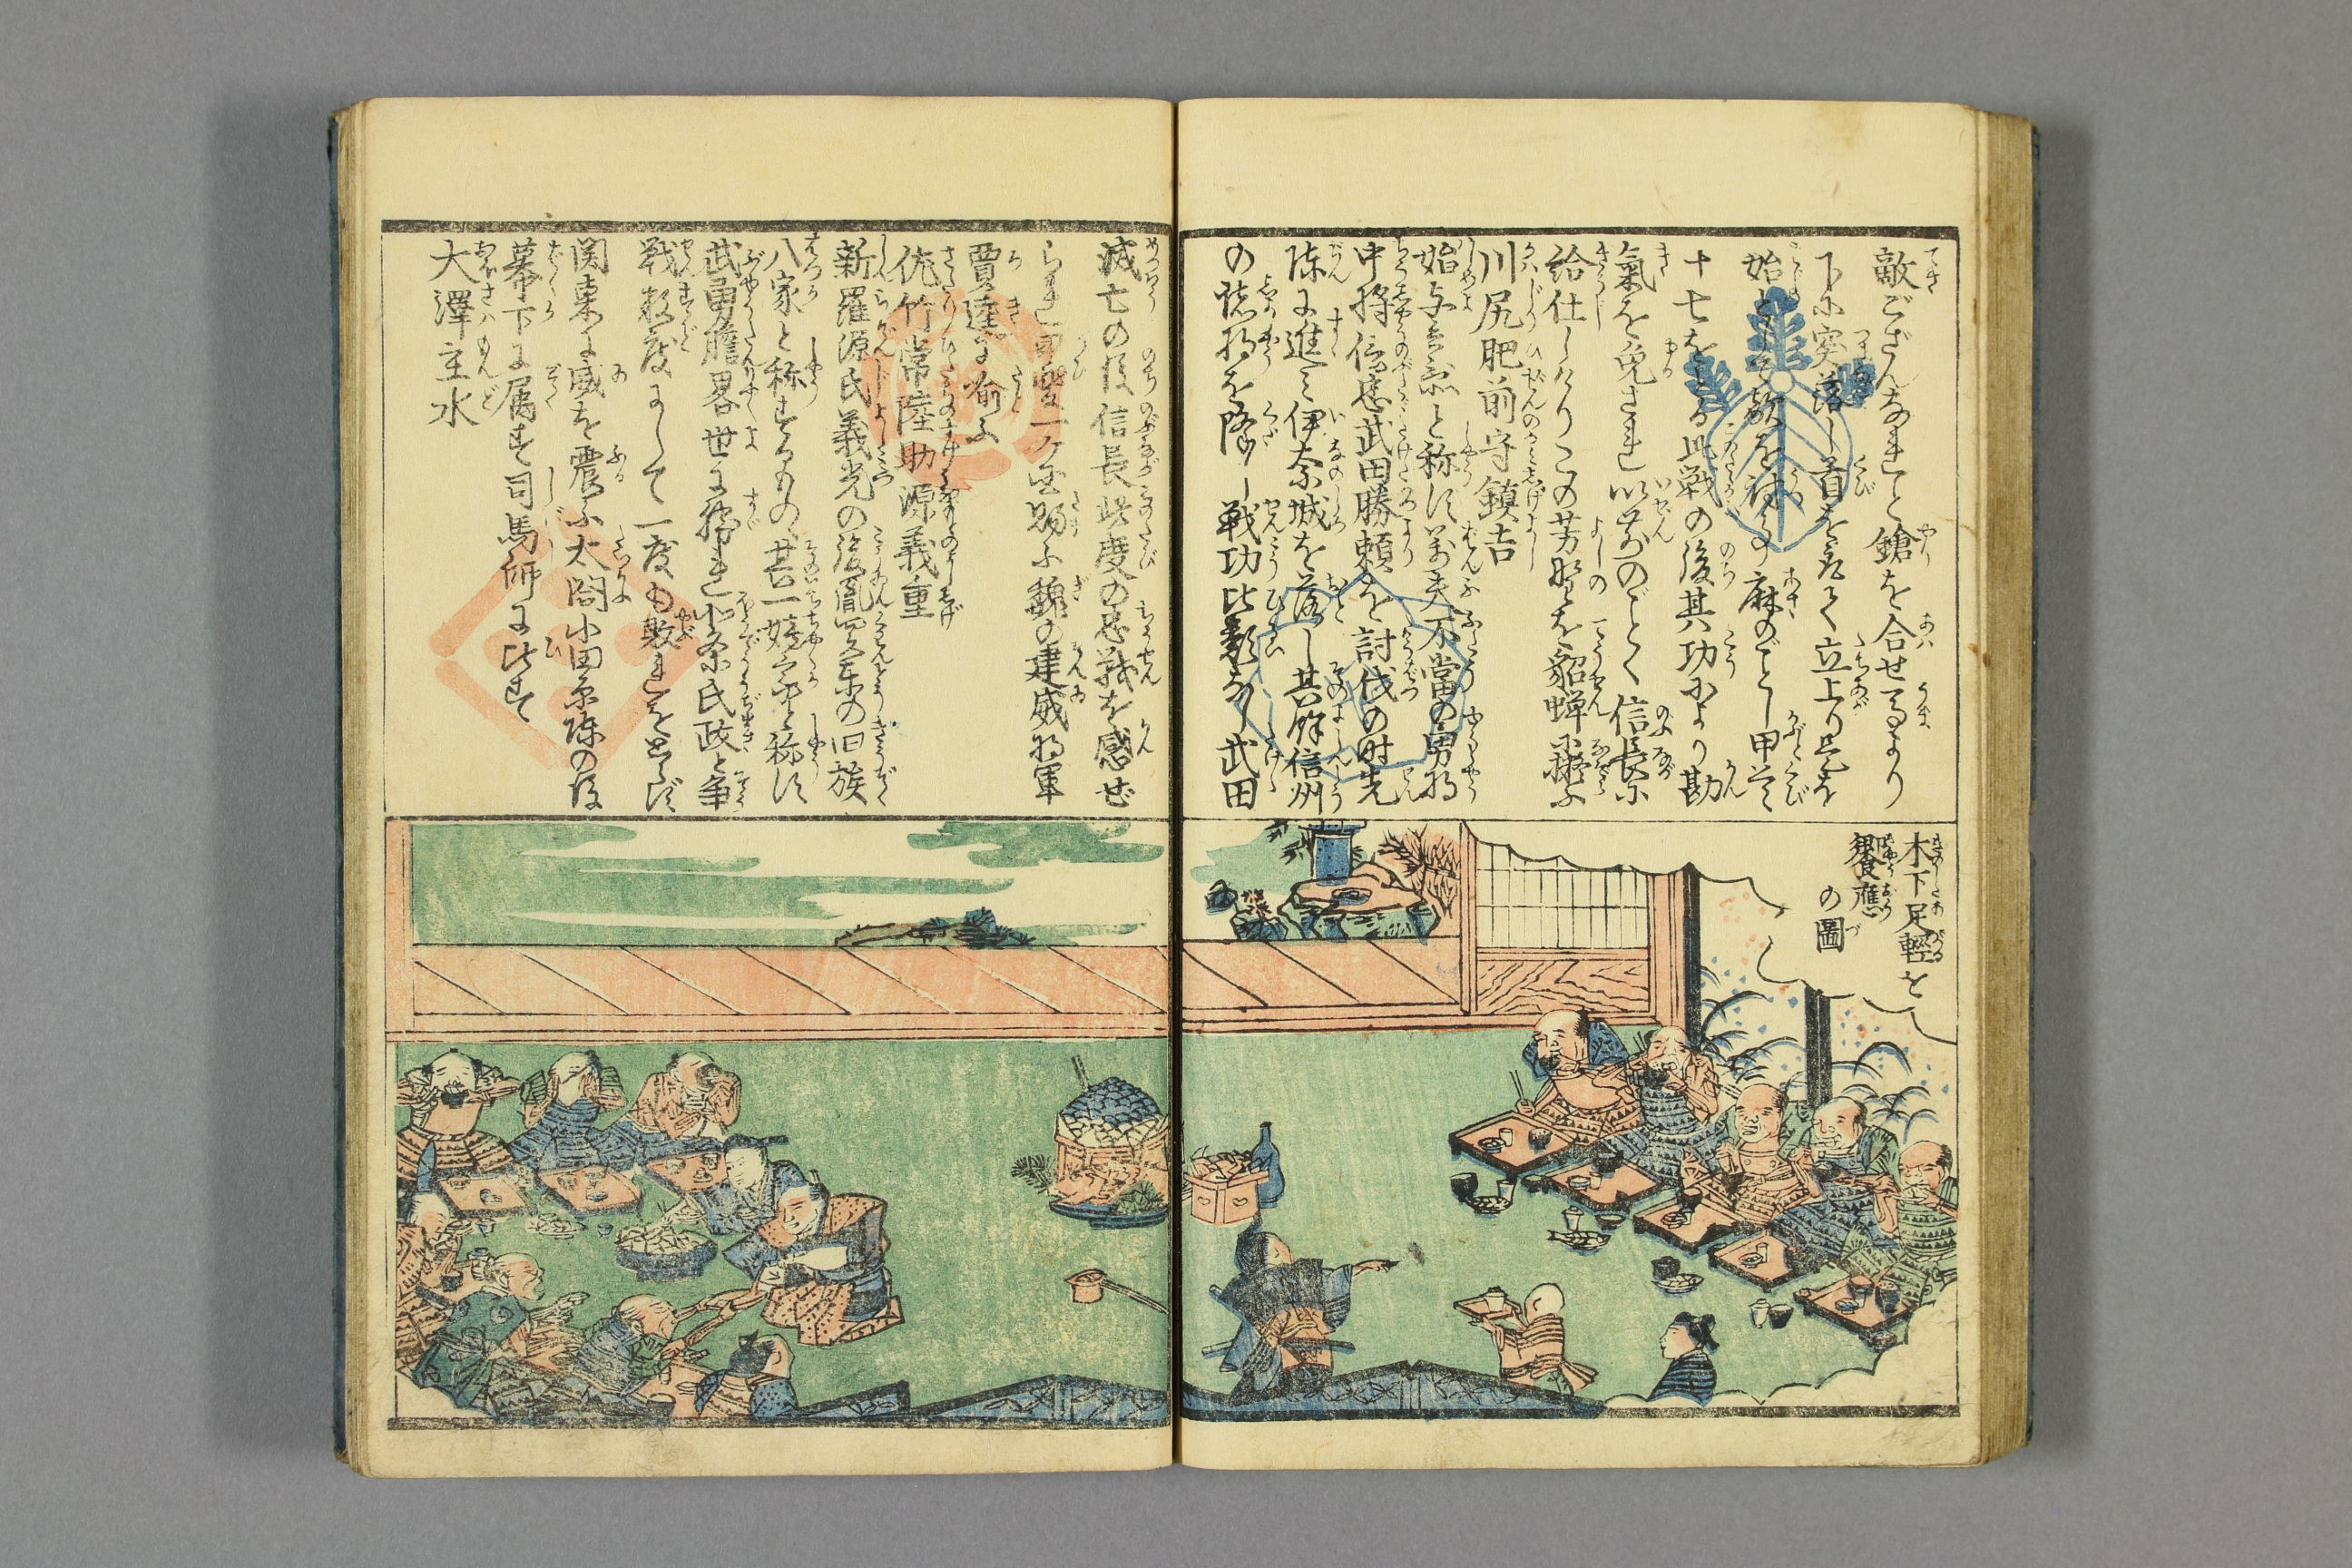 敵ござんなれと鎗を合せ馬より
下に突落し首を取て立上り是を
始として敵を被る麻のごとし甲首
十七をとる此戦の後其功により勘
氣を免され以前のごとく信長に
給仕しけりこの芳野を貂蝉に擬ふ
川尻肥前守鎮吉
始与兵衛と称す万夫不當の勇将
中将信忠武田勝頼を討伐の時先
陣に進み伊奈城を落し其餘信州
の諸将を降し戦功比類なし武田
滅亡の後信長此度の忠戦を感ぜ
られ甲斐一ヶ国賜ふ魏の建威将軍
賈逵に喩ふ
佐竹常陸助源義重
新羅源氏義光の後胤関東の旧族
八家と称するもの其一
武勇膽畧世に勝れ北条氏政と争
戦数度にして一度も敗れをとらず
関東に威を震ふ太閤小田原陣の後
幕下に属す司馬師に比す
大澤主水
木下足輕を
饗應
の圖